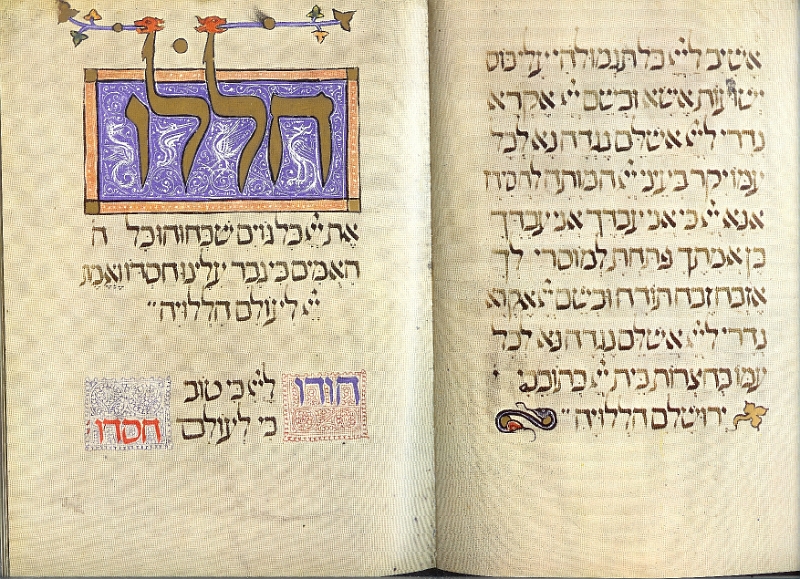 אשיב לייי כל תגמולהי עלי כוס
ישועות אשא ובשם ייי אקרא
נדרי לייי אשלם נגדה נא לכל
עמו יקר בעיני ייי המותה לחסדיו
אנא ייי כי אני עבדך אני עבדך
בן אמתך פתחת למוסרי לך
אזבח זבח תודה ובשם ייי אקרא
נדרי לייי אשלם נגדה נא לכל
עמו בחצרות בית ייי בתוככי
ירושלם הללויה
הללו
את ייי כל גוים שבחוהו כל ה
האמים כי גבר עלינו חסדו ואמת
ייי לעולם הללויה
הודו לייי כי טוב
כי לעולם חסדו